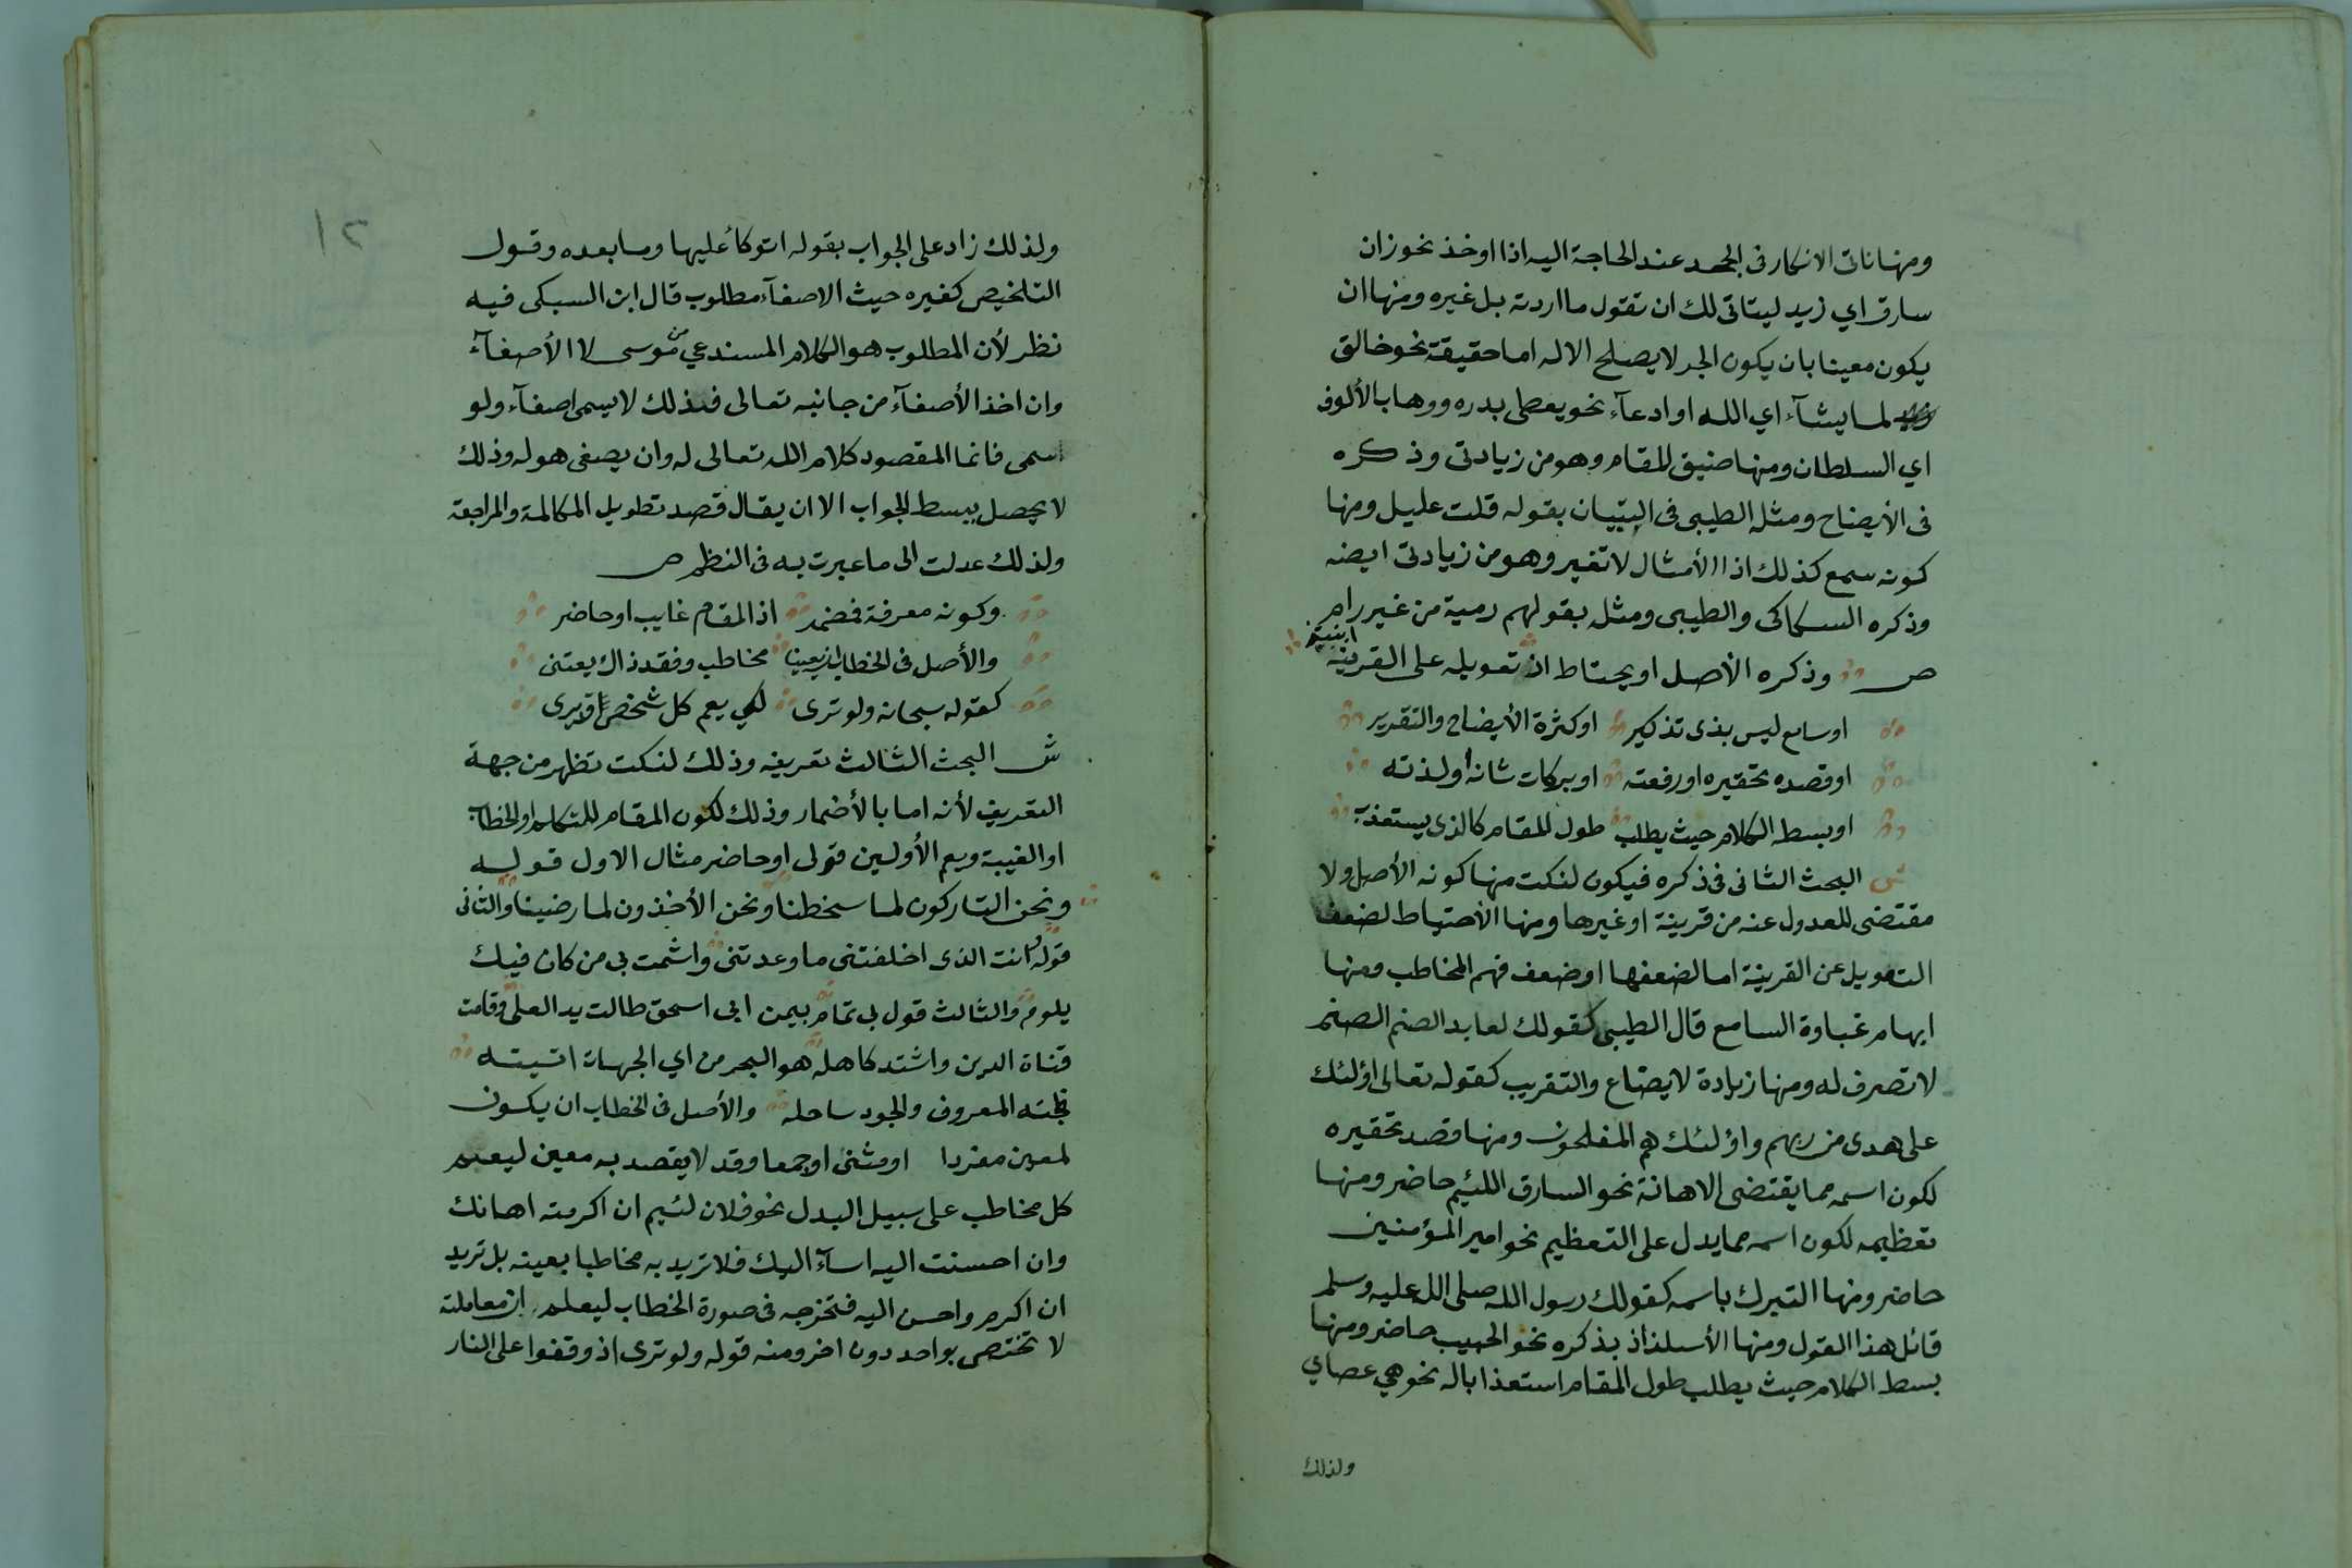 ومنها تاتى الانكار فى الجحد عند الحاجة اليه اذا اوخذ نحو زان
سارق اي زيد ليتاتى لك ان تقول ما اردته بل غيره ومنها ان
يكون معينا بان يكون الجر لا يصلح الا له اما حقيقة نحو خالق
لما يشآء اي الله او ادعآء نحو يعطى بدره ووهاب الألوف
اي السلطان ومنها ضيق المقام وهو من زيادتى وذكره
فى الأيضاح ومثله الطيبى فى التبيان بقوله قلت عليل ومنها
كونه سمع كذلك اذا الأمثال لا تغير وهو من زيادتى ايضه
وذكره السكاكى والطيبى ومثل بقولهم رمية من غير رام
ص وذكره الأصل او يحتاط ان تعويله على القرينة ابنيتن
او سامع ليس بذى تذكير او كثرة الأيضاح والتقرير
او قصده تحقيره او رفعته او بركات شانه أو لذته
او بسطه الكلام حيث يطلب طول المقام كالذى يستعذب
ش البحث الثانى فى ذكره فيكون لنكت منها كونه الأصل ولا
مقتضى للعدول عنه من قرينة او غيرها ومنها الأحتياط لضعف
التعويل عن القرينة اما لضعفها او ضعف فهم المخاطب ومنها
ايهام غباوة السامع قال الطيبى كقولك لعابد الصنم الصنم
لا تصرف له ومنها زيادة لايضاع والتقريب كقوله تعالى اؤلئك
على هدى من ربهم واؤلئك هم المفلحون ومنها قصد تحقيره
لكون اسمه مما يقتضى الاهانة نحو السارق اللئيم حاضر ومنها
تعظيمه لكون اسمه مما يدل على التعظيم نحو امير المؤمنين
حاضر ومنها التبرك باسمه كقولك رسول الله صلى الله عليه وسلم
قائل هذا القول ومنها الأسلذاذ بذكره نحو الحبيب حاضر ومنها
بسط الكلام حيث يطلب طول المقام استعذابا له نحو هي عصاي
ولذلك
١٢
ولذلك زاد على الجواب بقوله اتوكأ عليها وما بعده وقول
التلخيص كغيره حيث الاصغآء مطلوب قال ابن السبكى فيه
نظر لأن المطلوب هو الكلام المستدعي من موسى لا الأصغآء
وان اخذ الأصغآء من جانبه تعالى فذلك لا يسمى اصغآء ولو
اسمى فانما المقصود كلام الله تعالى له وان يصغى هو له وذلك
لا يحصل ببسط الجواب الا ان يقال قصد تطويل المكالمة والمراجعة
ولذلك عدلت الى ما عبرت به فى النظم ص
وكونه معرفة فمضمر اذ المقام غايب او حاضر
والأصل فى الخطاب ان يعينا مخاطب وفقد ذاك يعتنى
كقوله سبحانه ولو ترى لكي يعم كل شخص قد يرى
ش البحث الثالث تعريفه وذلك لنكت تظهر من جهة
التعريف لأنه اما بالأضمار وذلك لكون المقام للتكلم او الخطاب
او الغيبة ويعم الأولين قولى او حاضر مثال الاول قوله
ونحن التاركون لما سخطنا ونحن الأخذون لما رضينا والثانى
قوله وانت الذى اخلفتنى ما وعدتنى واشمت بى من كان فيك
يلوم والثالث قول بى تمام بيمن ابى اسحق طالت يد العلى وقامت
قناة الدين واشتد كاهله هو البحر من اي الجهات اتيته
فلجته المعروف والجود ساحله والأصل فى الخطاب ان يكون
لمعين مفردا او مثنى او جمعا وقد لا يقصد به معين ليعم
كل مخاطب على سبيل البدل نحو فلان لئيم ان اكرمته اهانك
وان احسنت اليه اسآء اليك فلا تريد به مخاطبا بعينه بل تريد
ان اكرم واحسن اليه فتخرجه فى صورة الخطاب ليعلم ان معاملته
لا تختص بواحد دون اخر ومنه قوله ولو ترى اذ وقفوا على النار